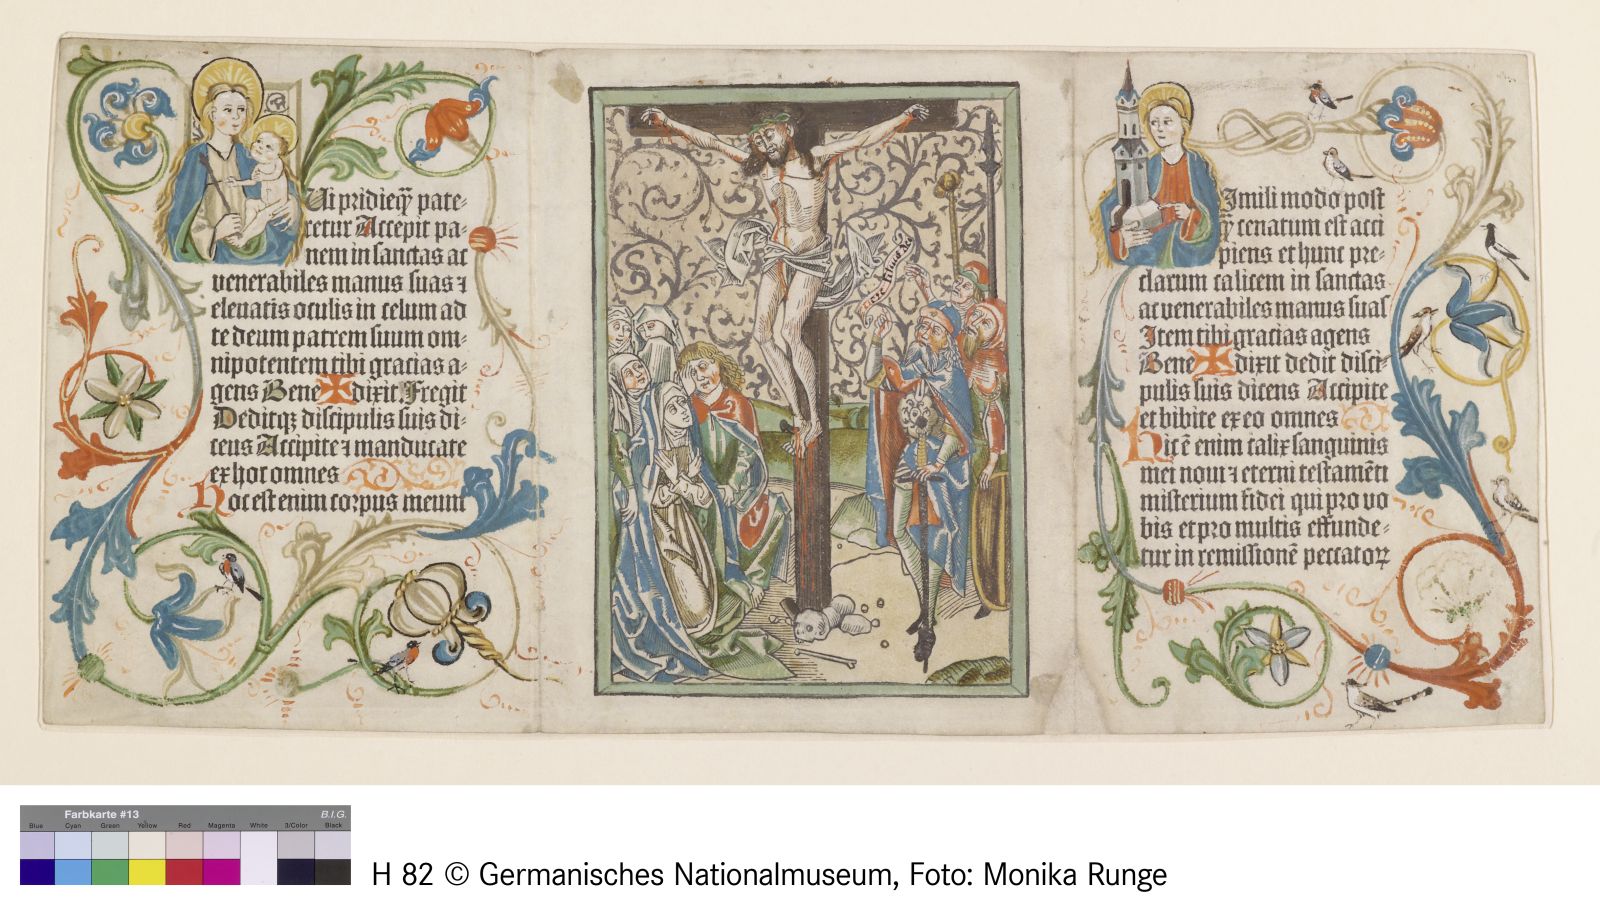 Ui pridieq̃ pate⸗
retur Accepit pa⸗
nem in sanctas ac
venerabiles manus suas ⁊
eleuatis oculis in celum ad
te deum patrem suum om⸗
nipotentem tibi gracias a⸗
gens Bene✠dixit. Fregit
Deditqꝫ discipulis suis di⸗
cens Accipite ⁊ manducate
ex hoc omnes
Hoc est enim corpus meum
Simili modo post
q̃ cenatum est acci
piens et hunc pre⸗
clarum calicem in sanctas
ac venerabiles manus suas
Item tibi gracias agens
Bene✠dixit dedit disci⸗
pulis suis dicens Accipite
et bibite ex eo omnes
Hic ē enim calix sanguinis
mei noui ⁊ eterni testamēti
misterium fidei qui pro vo
bis et pro multis effunde⸗
tur in remissionē peccatoꝝ
Farbkarte #13
B.I.G.
Blue Cyan Green Yellow Red Magenta White 3/Color Black
H 82 © Germanisches Nationalmuseum, Foto: Monika Runge